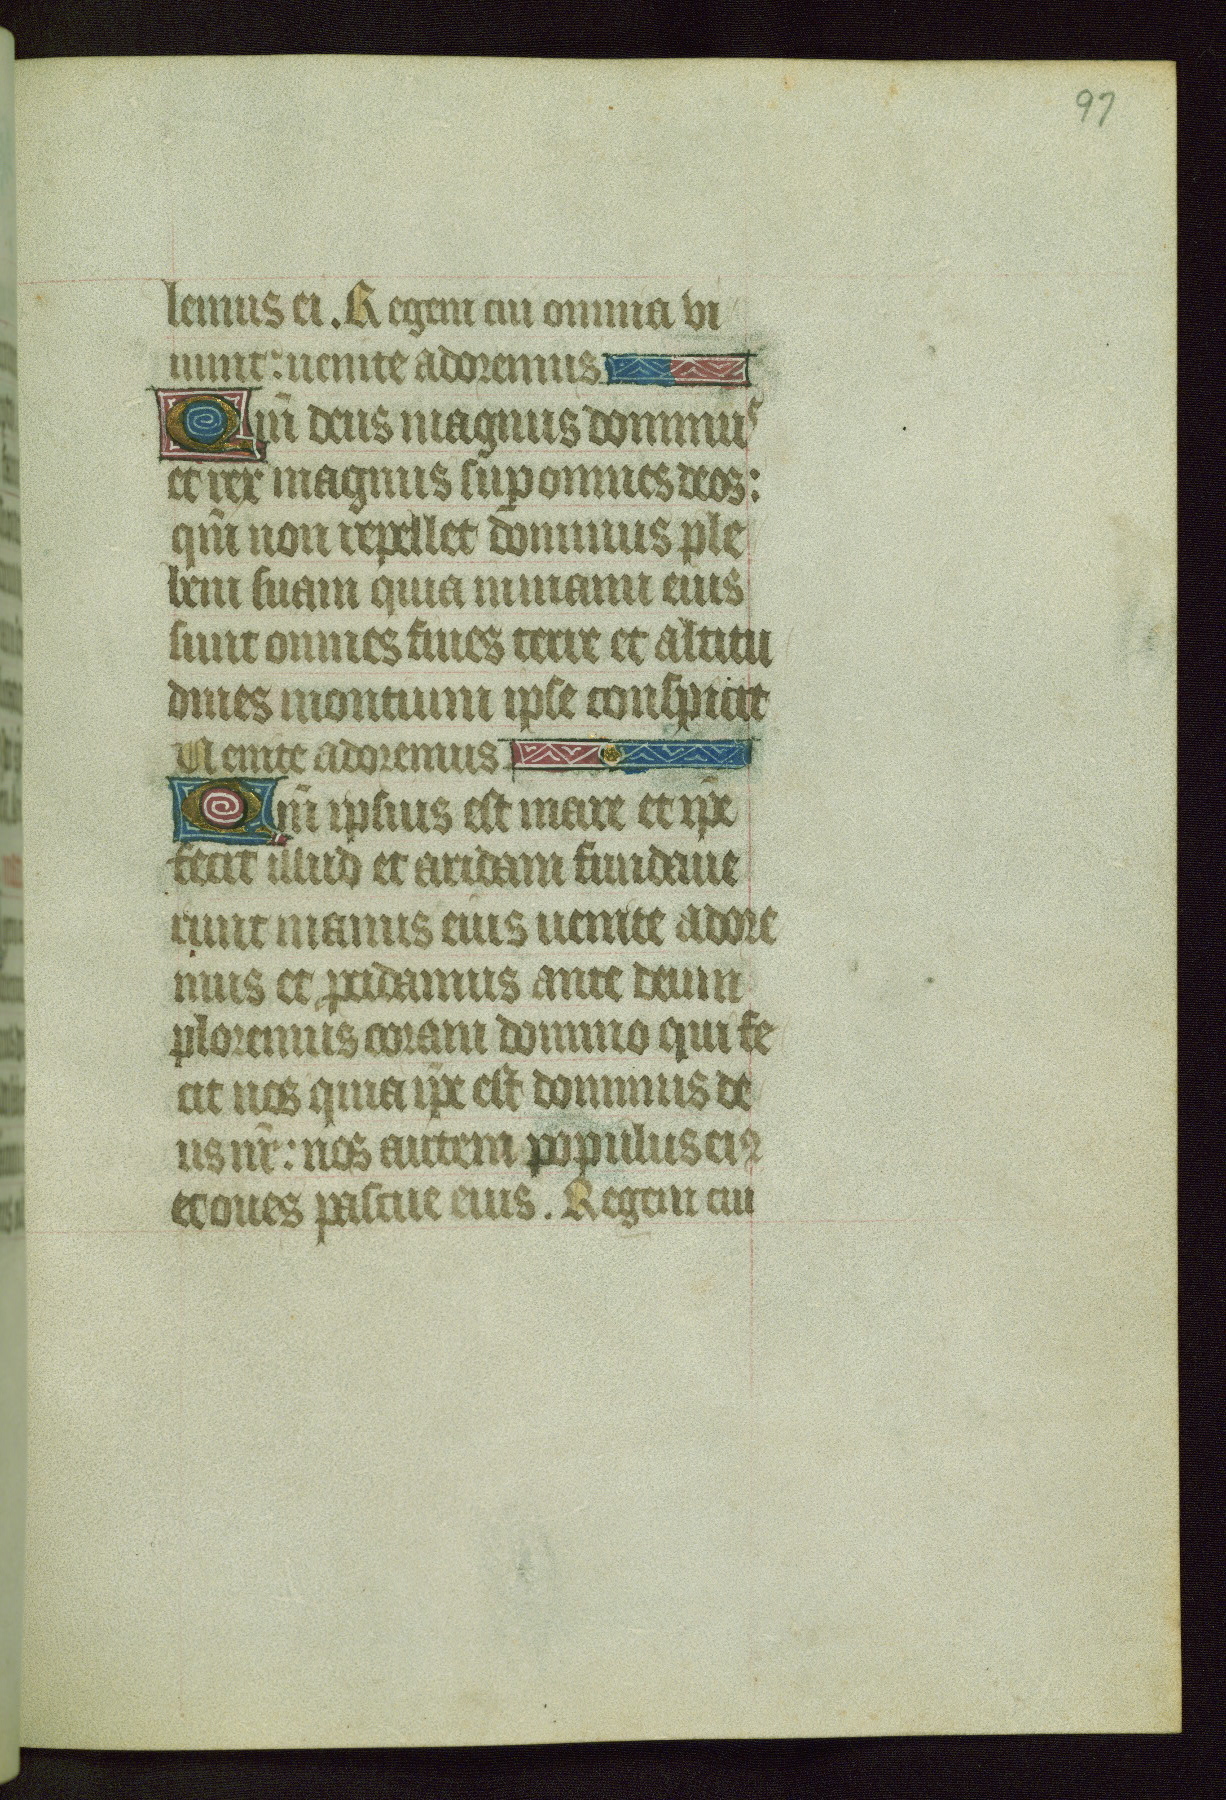 97
lemus ei. Regem cui omnia vi
uunt: uenite adoremus
Qm̄ deus magnus dominus
et rex magnus sup omnes deos:
qm̄ non repellet dominus ple
bem suam quia in manu eius
sunt omnes fines terre et altitu
dines montium ipse conspicit
Uenite adoremus
Qm̄ ipsius est mare et ip̄e
fecit illud et aridam fundaue
runt manus eius uenite adore
mus et pcidamus ante deum
ploremus coram domino qui fe
cit nos quia ip̄e est dominus de
us nr̄: nos autem populus eiꝰ
et oues pascue eius. Regem cui